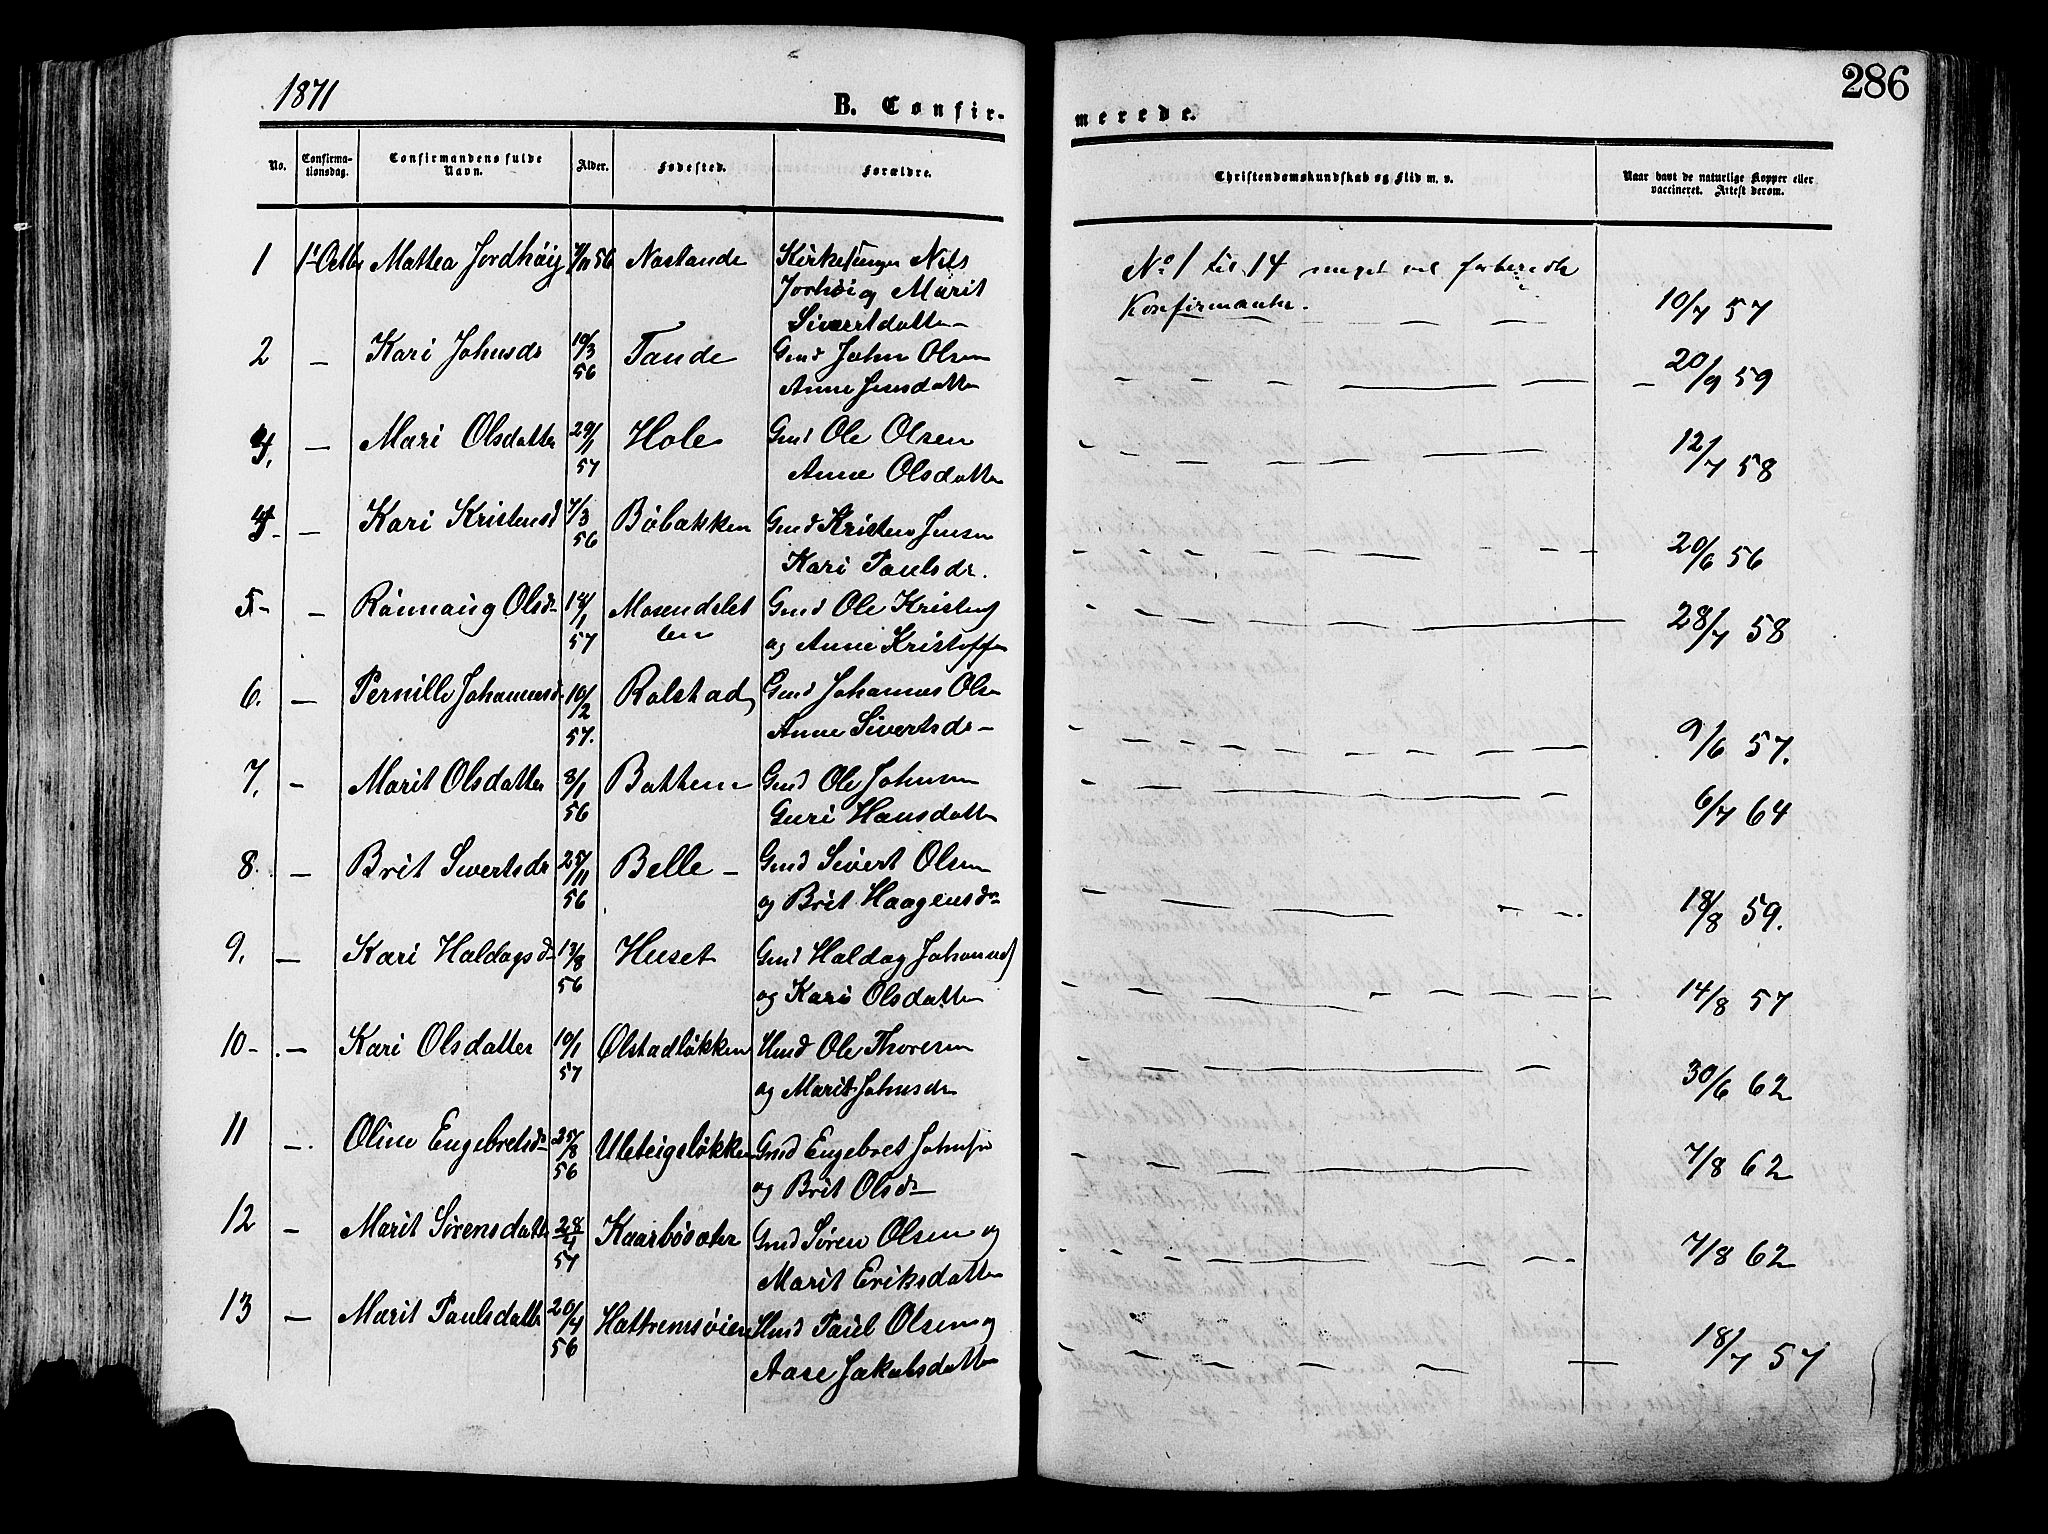 1871
286
B. Confirmerede.
No. Confirmationsdag. Confirmandens fulde Navn. Alder. Fødested. Forældre. Christendomskundskab og Flid m. v. Naar havt de naturlige Kopper eller vaccineret. Attest derom.
1 1 Octbr Mattea Jordhöig 56 Kirkesanger Nils
Marit
Sivertdatter
No 1 til 14 meget vel forberedte
Konfirmanter. 10/7 57
2 — Kari Johnsdr 10/3 56 Tande Gmd John Olsen
Anne Jensdatter
20/9 59
3. — Mari Olsdatter 29/1 57 Hole Gmd Ole Olsen
Anne Olsdatter
12/7 58
4 — Kari Kristensd 7/3 56 Böbakken Gmd Kristen Jensen
Kari Paulsdr.
20/6 56
5 — Rönnaug Olsdr 57 Gmd Ole Kristens
og Anne Kristoffer
28/7 58
6. — Pernille Johannesd. 10/2 57. Rolstad Gmd Johannes Olsen
Anne Sivertsdr
9/6 57.
7. — Marit Olsdatter 8/1 56 Botten Gmd Ole Johnsen
Guri Hansdatter
6/7 64
8. — Brit Sivertsdr 25/11 56 Belle Gmd Sivert Olsen
og Brit Haagensdr
18/8 59.
9. — Kari Haldogsdr 13/8 56 Huset Gmd Haldog Johannes
og Kari Olsdatter
14/8 57
10 — Kari Olsdatter 10/1 57 Ølstadløkken Hmd Ole Thoresen
og Marit Johnsdr
30/6 62
11 — Oline Engebretsdr 25/8 56 Uleteigsløkken Gmd Engebret Johnsen
og Brit Olsdr
7/8 62
12 — Marit Sørensdatter 28/4 57 Gmd Søren Olsen og
Marit Eriksdatter
7/8 62
13 — Marit Paulsdatter 20/4 56 Hattremsøien Hmd Paul Olsen og
Aase Jakobsdatter
18/7 57